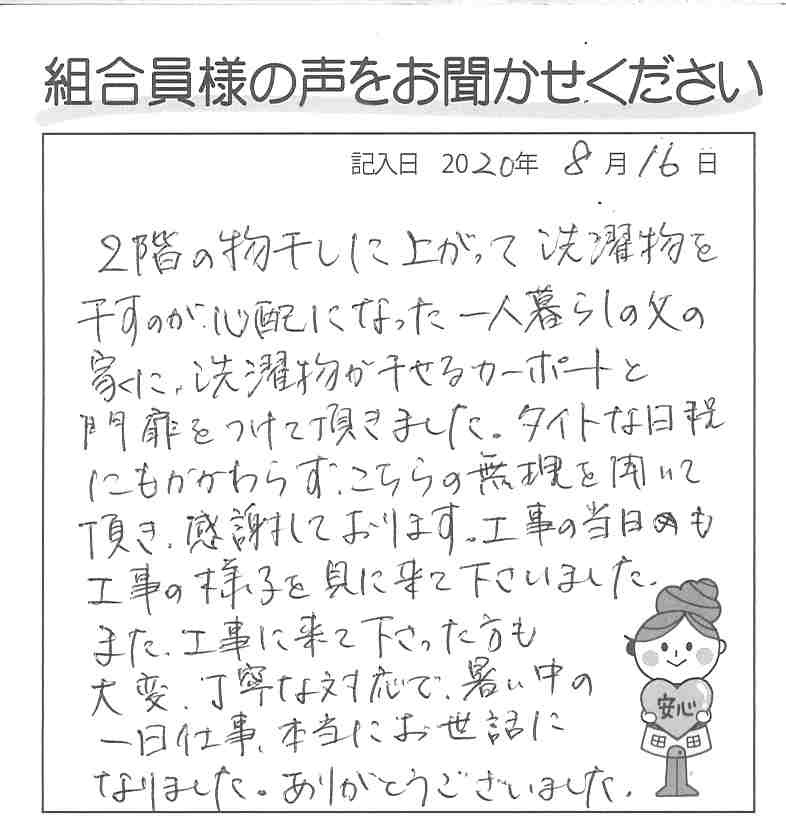 組合員様の声をお聞かせください
記入日 2020年 8月16日
2階の物干しに上がって洗濯物を
干すのが、心配になった一人暮らしの父の
家に、洗濯物が干せるカーポートと
門扉をつけて頂きました。タイトな日程
にもかかわらず、こちらの無理を聞いて
頂き、感謝しております。工事の当日も
工事の様子を見に来て下さいました。
また、工事に来て下さった方も
大変、丁寧な対応で、暑い中の
一日仕事、本当にお世話に
なりました。ありがとうございました。
安心